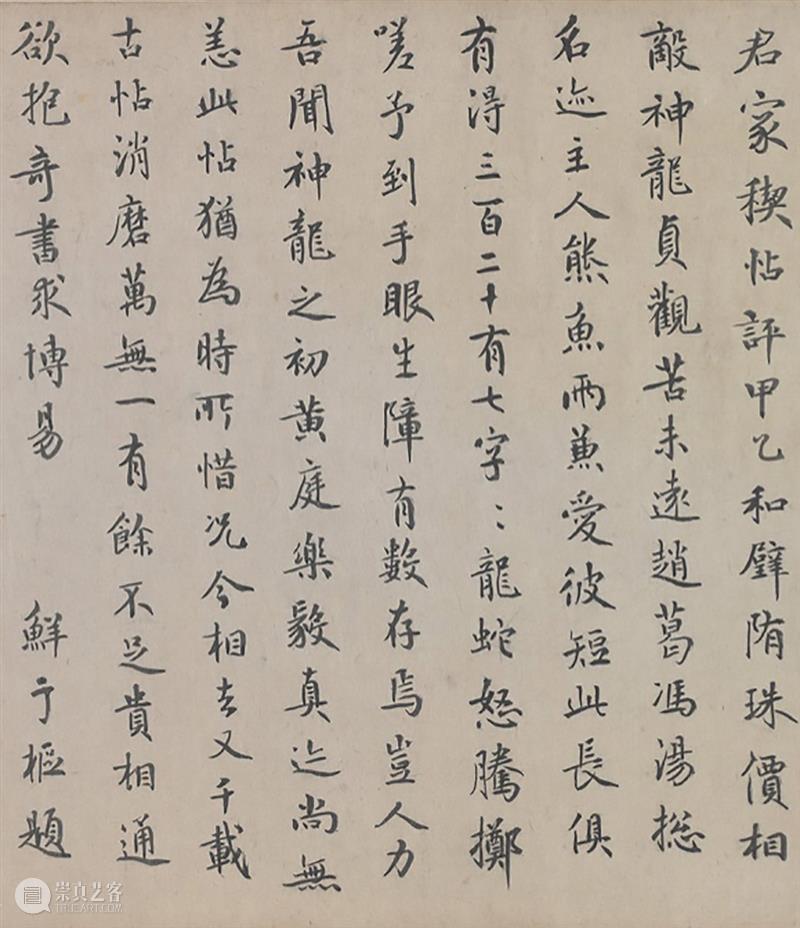 君家稧帖評甲乙和璧隋珠價相
敵神龍貞觀苦未遠趙葛馮湯揔
名迹主人熊魚兩兼愛彼短此長俱
有淂三百二十有七字〻龍蛇怒騰擲
嗟予到手眼生障有數存焉豈人力
吾聞神龍之初黄庭樂毅真迹尚無
恙此帖猶為時所惜况今相去又千載
古帖消磨萬無一有餘不足貴相通
欲抱奇書求博易 鮮于樞題
崇真艺客